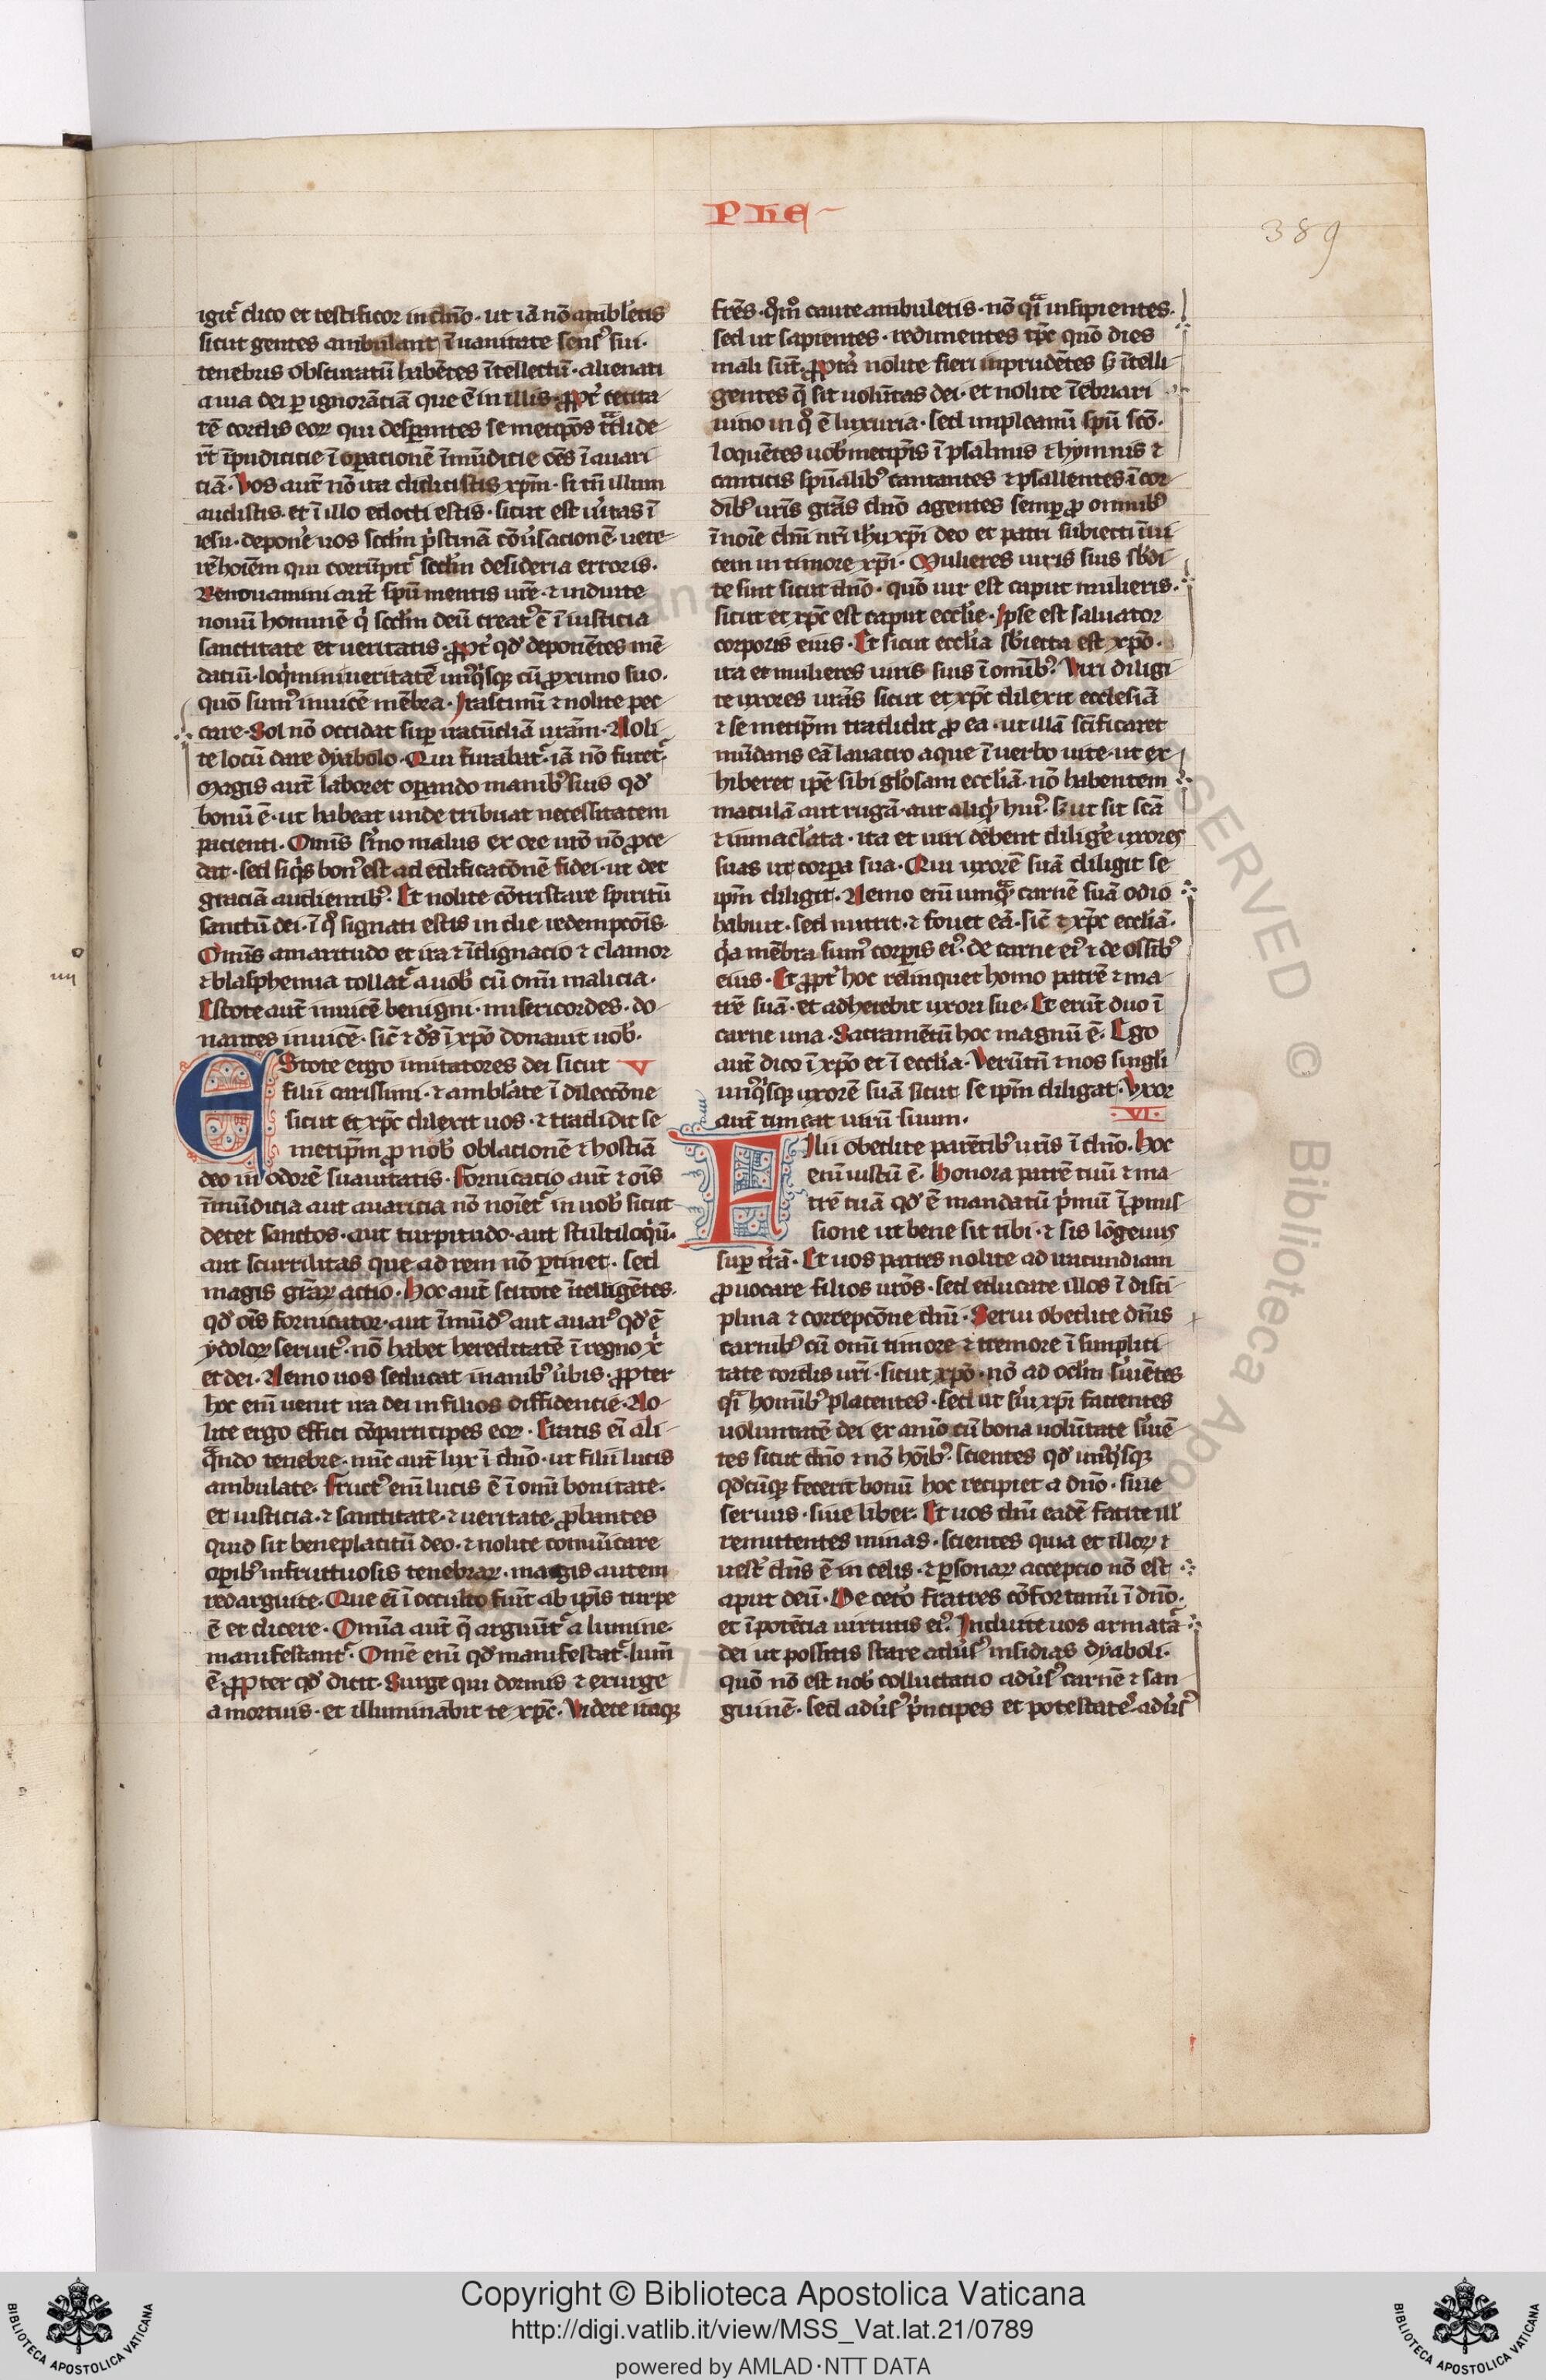 Phe
389
igit᷑ dico et testificor in dño · ut iā nō ambl'etis
sicut gentes ambulant ī uanitate sensꝰ sui ·
tenebris obscuratū habētes ītellectū · alienati
a uia dei ꝑ ignorātiā que ē in illis · ꝓpt᷑ cecita
tē cordis eoꝝ qui desꝑantes semetip̄os tͣdide
rt̄ īpudicitie ī oꝑationē īmūdicie oēs ī auari
ciā · Vos aut̄ nō ita didicistis xp̄m · si tn̄ illum
audistis · et ī illo edocti estis · sicut est u'itas ī
iesu · depone uos scdm̄ p'stinā cōu'sacionē uete
rē hoīem qui corrūpit᷑ scdm̄ desideria erroris ·
Renouamini aut̄ spū mentis ur̄e · ⁊ induite
nouū hominē qͥ scdm̄ deū creatꝰ ē ī iusticia
sanctitate et ueritatis · ꝓpt᷑ qd' deponētes mē
daciū · loqͥmini ueritatē unꝰqͥsqꝫ cū ꝓximo suo ·
quō sumꝰ inuicē mēbra · Irascimī ⁊ nolite pec
care · Sol nō occidat suꝑ iracūdiā urām · Noli
te locū dare dyabolo · Qui furabat᷑ · iā nō furet᷑ ·
Magis aut̄ laboret oꝑando manibꝰ suis qd'
bonū ē · ut habeat unde tribuat necessitatem
pacienti · Omīs s'mo malus ex ore ur̄o nō ꝓce
dat · sed siqͥs bonꝰ est ad edificacōnē fidei · ut det
graciā audientibꝰ · Et nolite cōtristare spiritū
sanctū dei · ī qͦ signati estis in die redempcōis ·
Omīs amaritudo et ira ⁊ īdignacio ⁊ clamor
⁊ blasphemia tollat᷑ a uob' cū omī malicia ·
Estote aut̄ inuicē benigni · misericordes · do
nantes inuicē · sic̄ ⁊ d's ī xp̄o donauit uob' ·
EStote ergo imitatores dei sicut V
filii carissimi · ⁊ ambl'ate ī dileccōne
sicut et xp̄c dilexit uos · ⁊ tradidit se
metip̄m ꝓ nob' oblacionē ⁊ hostiā
deo in odorē suauitatis · Fornicacio aut̄ ⁊ oīs
īmūdicia aut auaricia nō noīet᷑ in uob' sicut
decet sanctos · aut turpitudo · aut stultiloqͥū ·
aut scurrilitas que ad rem nō ꝑtinet · sed
magis grāꝝ actio · Hoc aut̄ scitote ītelligētes ·
qd' oīs fornicator · aut īmūdꝰ aut auarꝰ qd' ē
ydoloꝝ seruitꝰ · nō habet hereditatē ī regno x'
et dei · Nemo uos seducat inanibꝰ u'bis · ꝓpter
hoc enī uenit ira dei in filios diffidentie · No
lite ergo effici cōparticipes eoꝝ · Eratis eī ali
qͣndo tenebre · nūc aut̄ lux ī dño · ut filii lucis
ambulate · Fructꝰ enī lucis ē ī omī bonitate ·
et iusticia · ⁊ sanctitate · ⁊ ueritate · ꝓbantes
quid sit beneplacitū deo · ⁊ nolite comūicare
oꝑibꝰ infructuosis tenebraꝝ · magis autem
redarguite · Que eī ī occulto fiūt ab ip̄is turpe
ē et dicere · Omīa aut̄ q̄ arguūt᷑ a lumine ·
manifestant᷑ · Omē enī qd' manifestat᷑ · lum̄
ē · ꝓpter qd' dicit · Surge qui dormis ⁊ exurge
a mortuis · et illuminabit te xp̄c · Videte itaqꝫ
frēs · qͦmͦ caute ambuletis · nō qͣi insipientes ·
sed ut sapientes · redimentes tp̄c quō dies
mali sūt · ꝓpt'a nolite fieri inprudētes s; ītelli
gentes q̄ sit uolūtas dei · et nolite īebriari
uino in qͦ ē luxuria · sed impleamī spū sc̄o ·
loquētes uob'metip̄is ī psalmis ⁊ hymnis ⁊
canticis spūalibꝰ cantantes ⁊ psallentes ī cor
dibꝰ uris grās dño agentes semꝑ ꝓ omnibꝰ
ī noīe dn̄i nr̄i ih'u xp̄i deo et patri subiecti īui
cem in timore xp̄i · Mulieres uiris suis sb'di
te sint sicut dño · quō uir est caput mulieris ·
sicut et xp̄c est caput eccl'ie · Ipse est saluator
corporis eius · Et sicut eccl'ia sb'iecta est xp̄o ·
ita et mulieres uiris suis ī omībꝰ · Viri diligi
te uxores urās sicut et xp̄c dilexit ecclesiā
⁊ semetip̄m tradidit ꝓ ea · ut illā sc̄ificaret
mūdans eā lauacro aque ī uerbo uite · ut ex
hiberet ip̄e sibi gl'osam eccl'iā · nō habentem
maculā aut rugā · aut aliqͥd huiꝰ · s; ut sit sc̄ā
⁊ inmacl'ata · ita et uiri debent dilige uxores
suas ut corpora sua · Qui uxorē suā diligit se
ip̄m diligit · Nemo enī unqͣ carnē suā odio
habuit · sed nutrit · ⁊ fouet eā · sic̄ ⁊ xp̄c eccl'iā ·
qͥa mēbra sumꝰ corꝑis eiꝰ · de carne eiꝰ ⁊ de ossibꝰ
eius · Et ꝓpt' hoc relinquet homo patrē ⁊ ma
trē suā · et adherebit uxori sue · Et erūt duo ī
carne una · Sacramētū hoc magnū ē · Ego
aut̄ dico ī xp̄o et ī eccl'ia · Verūtn̄ ⁊ uos singl'i
unꝰqͥsqꝫ uxorē suā sicut se ip̄m diligat · Vxor
aut̄ timeat uirū suum · VI
FIlii obedite parētibꝰ uris ī dño · Hoc
enī iustū ē · Honora patrē tuū ⁊ ma
trē tuā qd' ē mandatū p'mū ī ꝓmis
sione ut bene sit tibi · ⁊ sis lōgeuus
suꝑ t'rā · Et uos patres nolite ad iracundiam
ꝓuocare filios urōs · sed educate illos ī disci
plina ⁊ correpcōne dn̄i · Serui obedite dn̄is
carnibꝰ cū omī timore ⁊ tremore ī simplici
tate cordis uri · sicut xp̄o · nō ad ocl'm s'uiētes
qͣi homībꝰ placentes · sed ut s'ui xp̄i facientes
uoluntatē dei ex anīo cū bona uolūtate s'uiē
tes sicut dño ⁊ nō hōibꝰ · scientes qd' unꝰqͥsqꝫ
qd'cūqꝫ fecerit bonū hoc recipiet a dño · siue
seruus · siue liber · Et uos dn̄i eadē facite ill'
remittentes minas · scientes quia et illoꝝ ⁊
uest' dn̄s ē in celis · ⁊ ꝑsonaꝝ acceptio nō est
aput deū · De cet'o fratres cōfortamī ī dño ·
et ī potētia uirtutis eiꝰ · Induite uos armatā
dei ut possitis stare adu'sꝰ insidias dyaboli ·
quō nō est nob' colluctatio adu'sꝰ carnē ⁊ san
guinē · sed adu'sꝰ p'ncipes et potestateꝰ adu'sꝰ
Copyright © Biblioteca Apostolica Vaticana
http://digi.vatlib.it/view/MSS_Vat.lat.21/0789
powered by AMLAD·NTT DATA
BIBLIOTECA APOSTOLICA VATICANA
BIBLIOTECA APOSTOLICA VATICANA